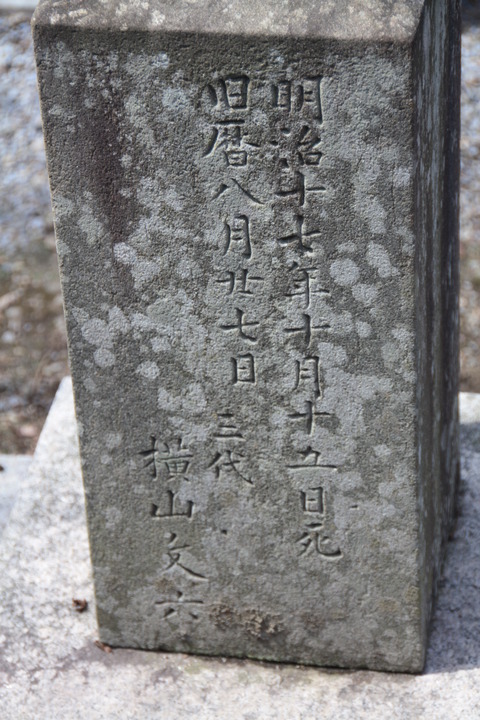 明治十七年十月十五日死
旧暦八月廿七日 三代
横山文六